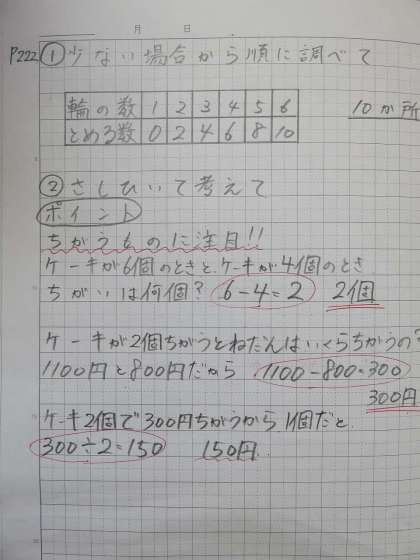 月 日
P222 ① 少ない場合から順に調べて
輪の数 1 2 3 4 5 6
とめる数 0 2 4 6 8 10
10か所
② さしひいて考えて
ポイント
ちがうものに注目!!
ケーキが6個のときと、ケーキが4個のとき
ちがいは何個? 6-4=2 2個
ケーキが2個ちがうとねだんはいくらちがうの?
1100円と800円だから 1100-800=300
300円
ケーキ2個で300円ちがうから 1個だと、
300÷2=150 150円